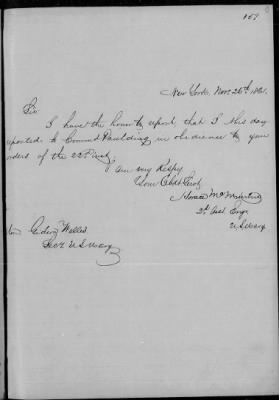 159
New York, Nov. 25th 1861.
Sir
I have the honor to report, that I this day
reported to Command Paulding in obedience to your
orders of the 22d inst,
I am very Respy
Your Obdt Servt
2d Asst. Engr
U.S. Navy
Gideon Welles
Secy U.S. Navy